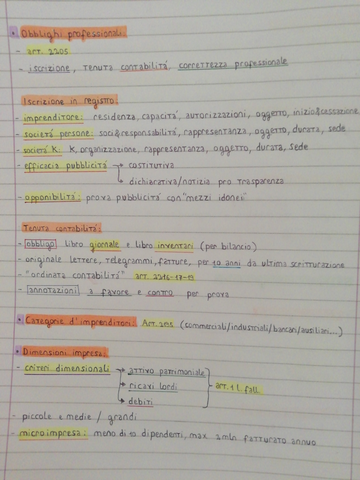 • Obblighi professionali:
- art. 2205
- iscrizione, tenuta contabilità, correttezza professionale
Iscrizione in registro:
- imprenditore: residenza, capacità, autorizzazioni, oggetto, inizio&cessazione
- società persone: soci&responsabilità, rappresentanza, oggetto, durata, sede
- società K: K, organizzazione, rappresentanza, oggetto, durata, sede
- efficacia pubblicità → costitutiva
→ dichiarativa/notizia pro trasparenza
- opponibilità: prova pubblicità con "mezzi idonei"
Tenuta contabilità:
- obbligo libro giornale e libro inventari (per bilancio)
- originale lettere, telegrammi, fatture, per 10 anni da ultima scritturazione
- "ordinata contabilità" art. 2216-17-19
- annotazioni a favore e contro per prova
• Categorie d'imprenditori: Art. 2195 (commerciali/industriali/bancari/ausiliari...)
• Dimensioni impresa:
- criteri dimensionali → attivo patrimoniale
→ ricavi lordi
→ debiti
- art. 1 l. fall.
- piccole e medie / grandi
- micro impresa: meno di 10 dipendenti, max 2mln fatturato annuo